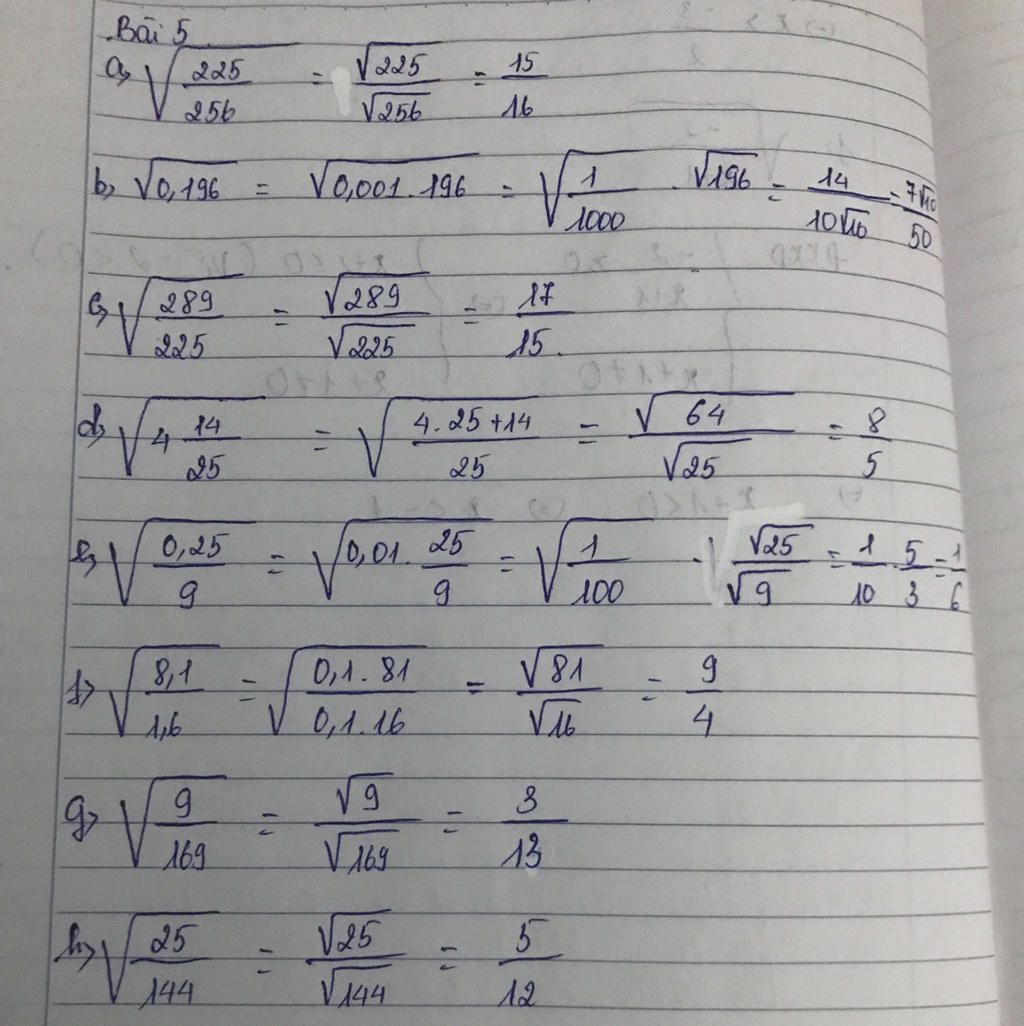 Bài 5
a, √(225/256) = √225/√256 = 15/16
b, √0,196 = √0,001.196 = √(1/1000) . √196 = 14/10√10 = 7√10/50
c, √(289/225) = √289/√225 = 17/15.
d, √(4 14/25) = √((4.25+14)/25) = √64/√25 = 8/5
e, √(0,25/9) = √(0,01.25/9) = √(1/100) . √25/√9 = 1/10 . 5/3 = 1/6
f, √(8,1/1,6) = √(0,1.81/0,1.16) = √81/√16 = 9/4
g, √(9/169) = √9/√169 = 3/13
h, √(25/144) = √25/√144 = 5/12